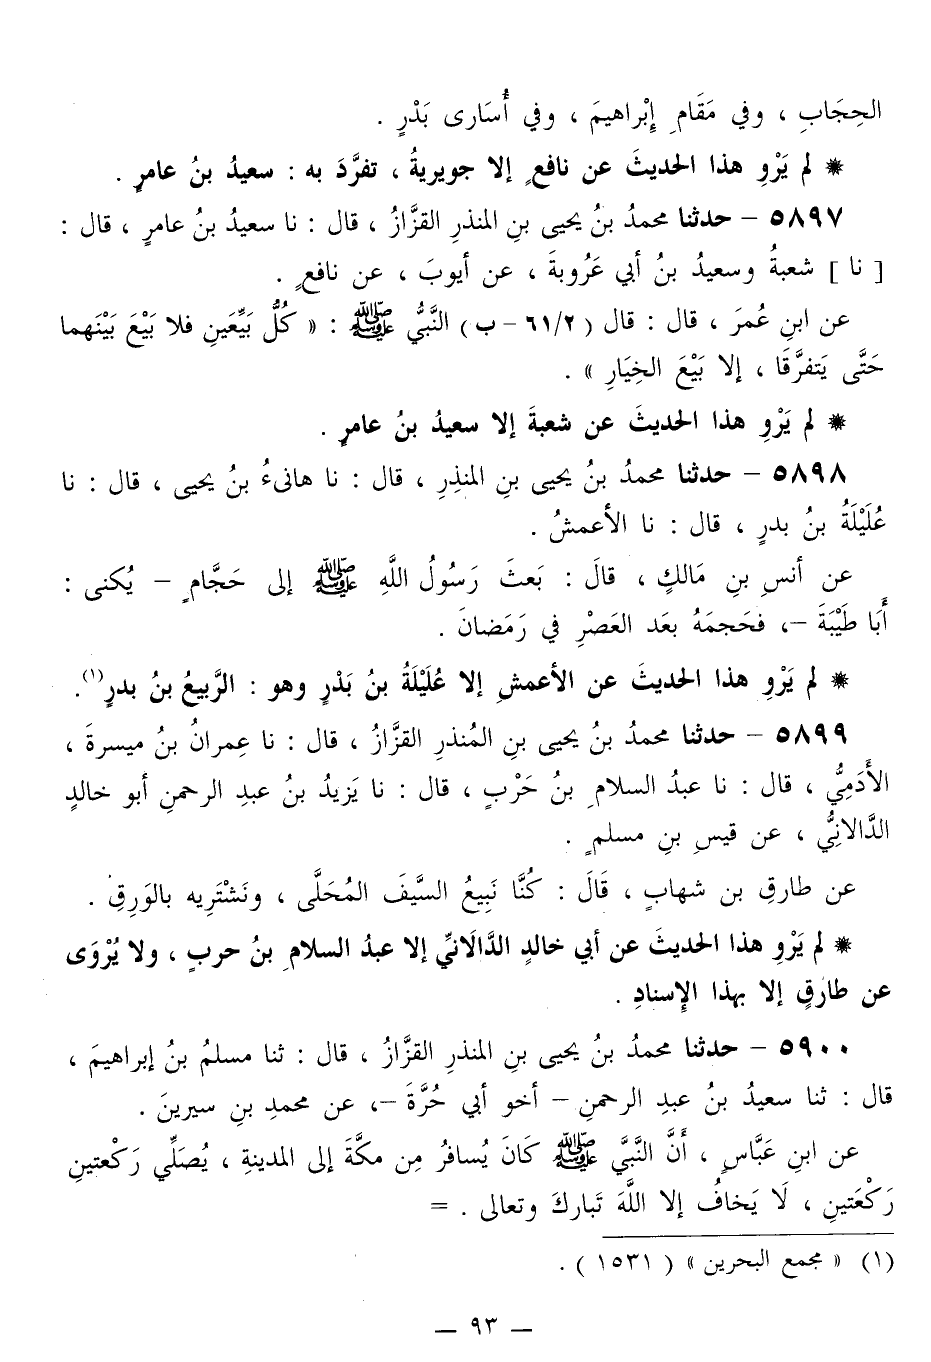 الحِجَابِ ، وفي مَقَامِ إِبْراهيمَ ، وفي أُسَارى بَدْرٍ .
* لم يَرْوِ هذا الحديثَ عن نافعٍ إلا جويريةُ ، تفرَّدَ به : سعيدُ بنُ عامرٍ .
٥٨٩٧ – حدثنا محمدُ بنُ يحيى بنِ المنذرِ القزَّازُ ، قال : نا سعيدُ بنُ عامرٍ ، قال :
[ نا ] شعبةُ وسعيدُ بنُ أبي عَرُوبةَ ، عن أيوبَ ، عن نافعٍ .
عن ابنِ عُمرَ ، قال : قال ( ٦١/٢ – ب ) النَّبيُّ ﷺ : « كُلُّ بَيِّعَينِ فلا بَيْعَ بَيْنَهما
حَتَّى يَتفرَّقَا ، إلا بَيْعَ الخِيَارِ » .
* لم يَرْوِ هذا الحديثَ عن شعبةَ إلا سعيدُ بنُ عامرٍ .
٥٨٩٨ – حدثنا محمدُ بنُ يحيى بنِ المنذِرِ ، قال : نا هانىءُ بنُ يحيى ، قال : نا
عُلَيْلَةُ بنُ بدرٍ ، قال : نا الأعمشُ .
عن أنسِ بنِ مَالكٍ ، قالَ : بَعثَ رَسُولُ اللَّهِ ﷺ إلى حَجَّامٍ – يُكنى :
أَبَا طَيْبَةَ –، فحَجمَهُ بعَد العَصْرِ في رَمَضانَ .
* لم يَرْوِ هذا الحديثَ عن الأعمشِ إلا عُلَيْلَةُ بنُ بَدْرٍ وهو : الرَّبيعُ بنُ بدرٍ(١).
٥٨٩٩ – حدثنا محمدُ بنُ يحيى بنِ المُنذرِ القزَّازُ ، قال : نا عِمرانُ بنُ ميسرةَ ،
الأَدَمِيُّ ، قال : نا عبدُ السلامِ بنُ حَرْبٍ ، قال : نا يَزيدُ بنُ عبدِ الرحمنِ أبو خالدٍ
الدَّالانِيُّ ، عن قيسِ بنِ مسلمٍ .
عن طارقِ بن شهابٍ ، قَالَ : كُنَّا نَبِيعُ السَّيفَ المُحَلَّى ، ونَشْتَرِيه بالوَرِقِ .
* لم يَرْوِ هذا الحديثَ عن أبي خالدٍ الدَّالَانيِّ إلا عبدُ السلامِ بنُ حربٍ ، ولا يُرْوَى
عن طارقٍ إلا بهذا الإِسنادِ .
٥٩٠٠ – حدثنا محمدُ بنُ يحيى بنِ المنذرِ القزَّازُ ، قال : ثنا مسلمُ بنُ إبراهيمَ ،
قال : ثنا سعيدُ بنُ عبدِ الرحمنِ – أخو أبي حُرَّةَ –، عن محمدِ بنِ سيرينَ .
عن ابنِ عَبَّاسٍ ، أَنَّ النَّبيَّ ﷺ كَانَ يُسافرُ مِن مكَّةَ إلى المدينةِ ، يُصَلِّي رَكْعتينِ
رَكْعَتينِ ، لَا يَخافُ إلا اللَّهَ تَباركَ وتعالى . =
(١) « مجمع البحرين » ( ١٥٣١ ) .
— ٩٣ —